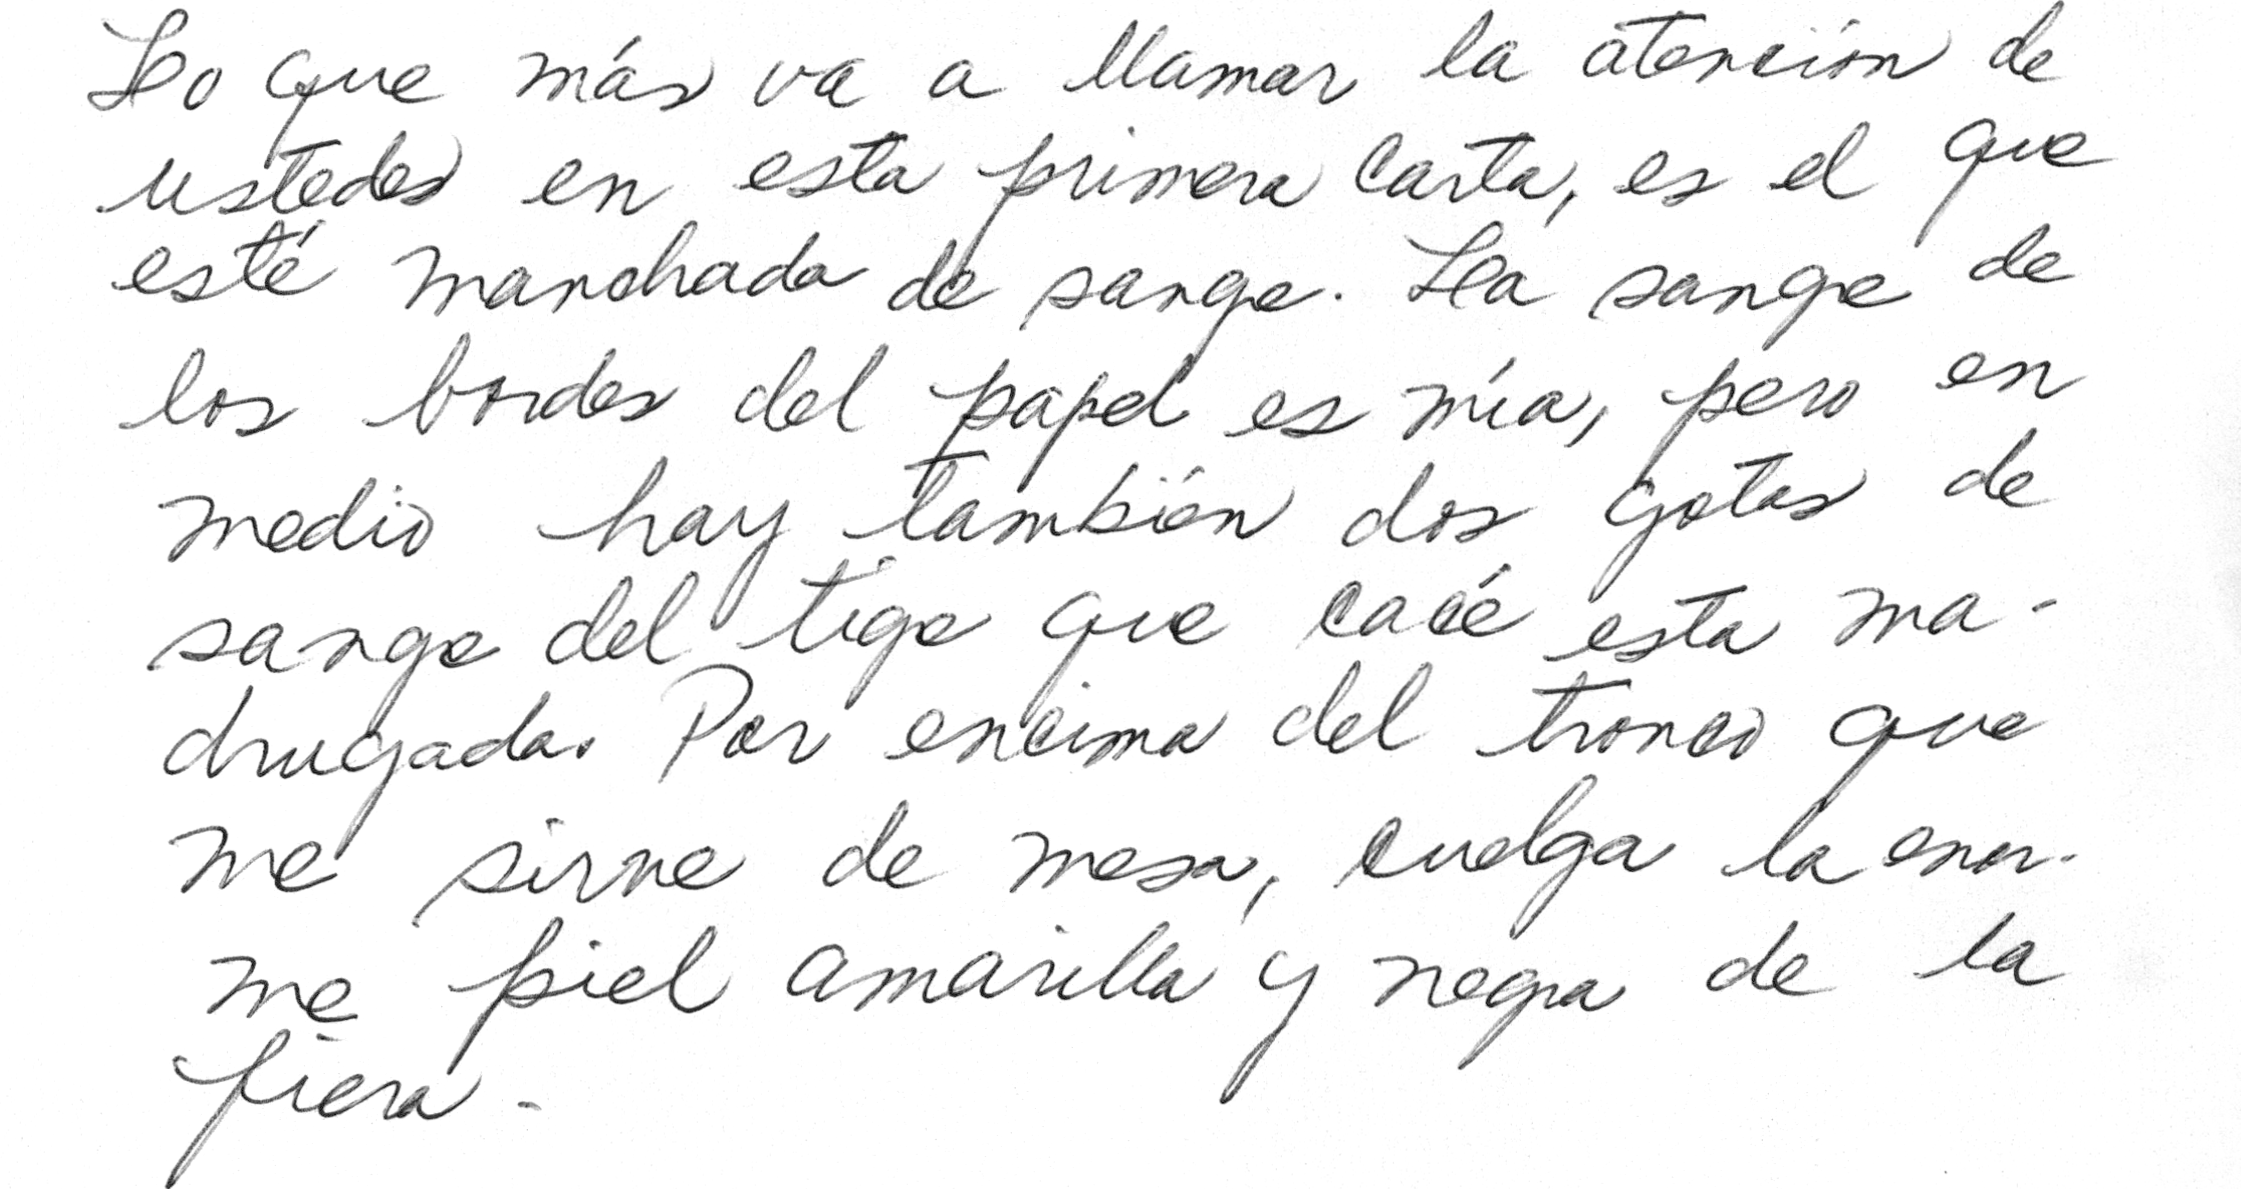 Lo que más va a llamar la atención de
ustedes en esta primera carta, es el que
esté manchada de sangre. La sangre de
los bordes del papel es mía, pero en
medio hay también dos gotas de
sangre del tigre que cacé esta ma-
drugada. Por encima del tronco que
me sirve de mesa, cuelga la enor-
me piel amarilla y negra de la
fiera.